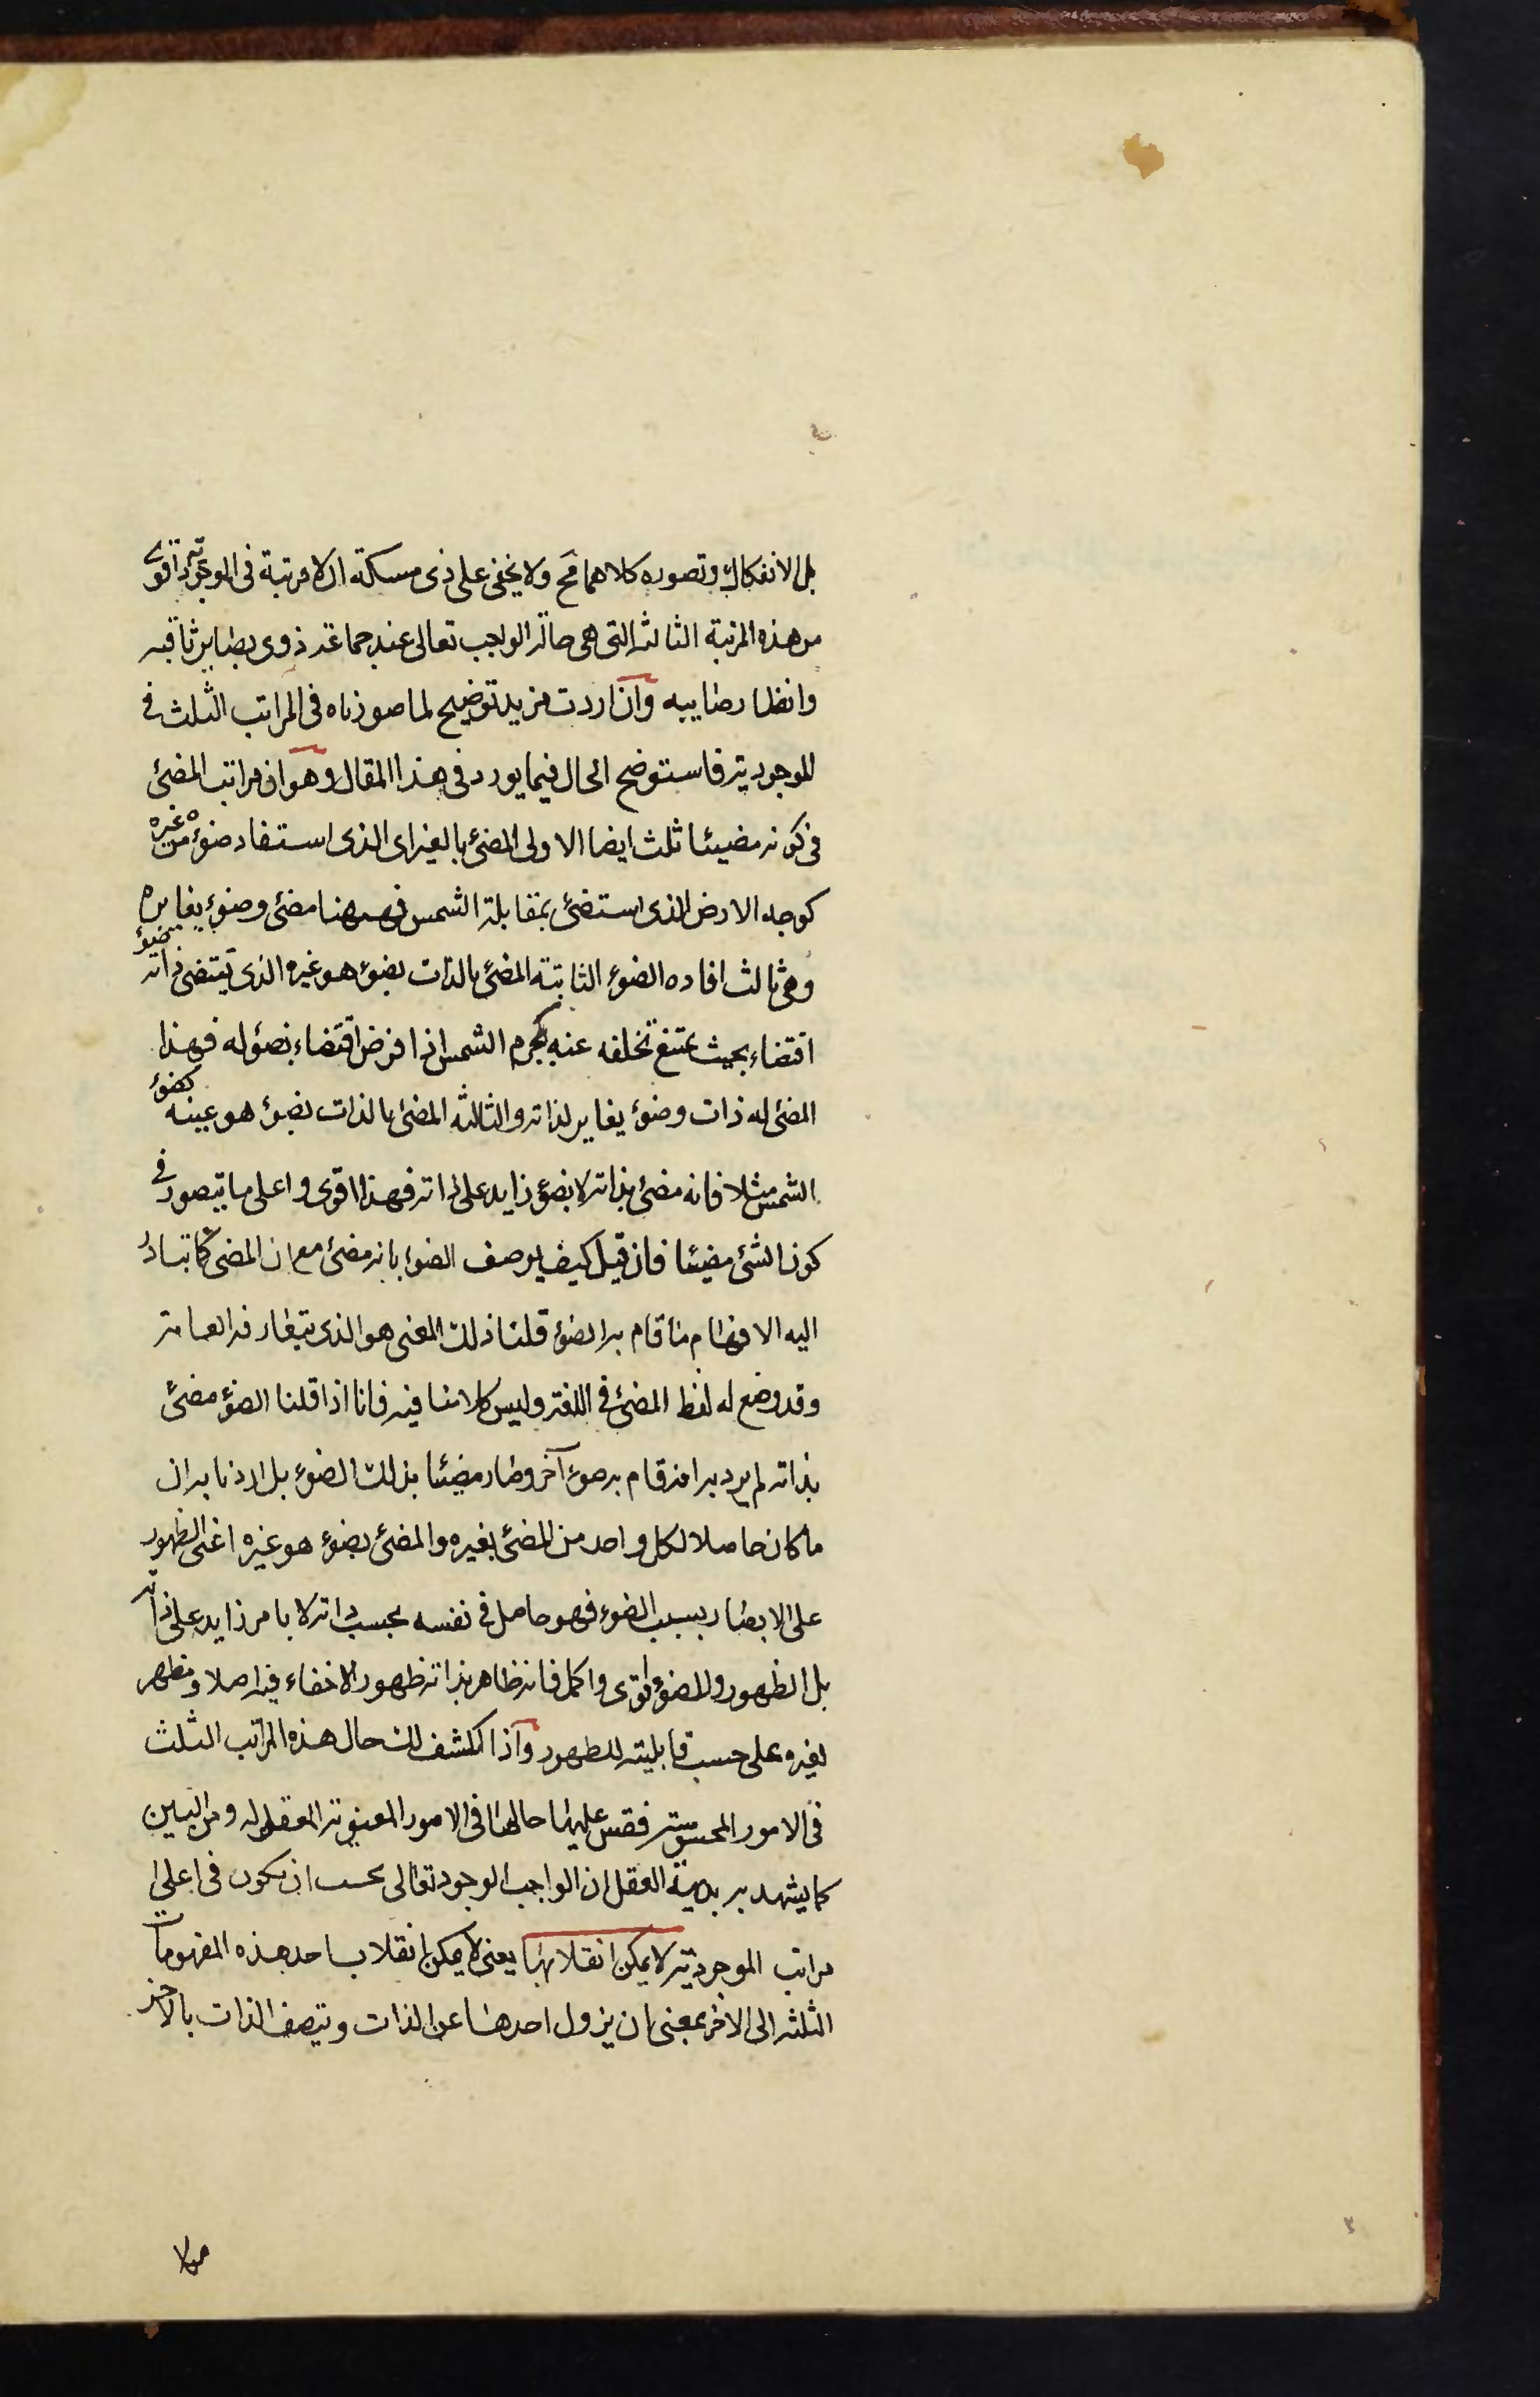 بل الانفكاك وتصوره كلاهما مح ولا يخفى على ذى مسكة ان لا مرتبة فى الموجودية اقوى
من هذه المرتبة الثالثة التى هى حال الواجب تعالى عند جماعة ذوى بصاير ثاقبه
وانظار صايبه وان اردت مزيد توضيح لما صورناه فى المراتب الثلث فى
الموجودية فاستوضح الحال فيما يورد فى هذا المقال وهو ان مراتب المضئ
فى كونه مضيئا ثلث ايضا الاولى المضئ بالغير اى الذى استفاد ضوءه من غيره
كوجه الارض الذى استضئ بمقابلة الشمس فههنا مضئ وضوء يغايره
وشئ ثالث افاده الضوء الثانية المضئ بالذات بضوء هو غيره الذى يقتضى ذاته ضوءه
اقتضاء بحيث يمتنع تخلفه عنه كجرم الشمس اذا فرض اقتضاء بضوئه له فهذا
المضئ له ذات وضوء يغاير لذاته والثالثة المضئ بالذات بضوء هو عينه كضوء
الشمس مثلا فانه مضئ بذاته لا بضوء زايد على ذاته فهذا اقوى واعلى ما يتصور فى
كون الشئ مضيئا فان قيل كيف يوصف الضوء بانه مضئ مع ان المضئ كما تبادر
اليه الافهام ما قام به الضوء قلنا ذلك المعنى هو الذى يتعارفه العامة
وقد وضع له لفظ المضئ فى اللغة وليس كلامنا فيه فانا اذا قلنا الضوء مضئ
بذاته لم يرد به انه قام به ضوء آخر وصار مضيئا بذلك الضوء بل اردنا به ان
ما كان حاصلا لكل واحد من المضئ بغيره والمضئ بضوء هو غيره اعنى الظهور
على الابصار بسبب الضوء فهو حاصل فى نفسه بحسب ذاته لا بامر زايد على ذاته
بل الظهور والضوء اقوى واكمل فانه ظاهر بذاته ظهورا لا خفاء فيه اصلا ومظهر
لغيره على حسب قابليته للظهور واذا انكشف لك حال هذه المراتب الثلث
فى الامور المحسوسة فقس عليها حالها فى الامور المعنوية المعقوله ومن البين
كما يشهد به بديهة العقل ان الواجب الوجود تعالى يجب ان يكون فى اعلى
مراتب الموجودية لا يمكن انقلابها يعنى لا يمكن انقلاب احد هذه المفهومات
الثلثه الى الاخر بمعنى ان يزول احدها عن الذات ويتصف الذات بالاخر